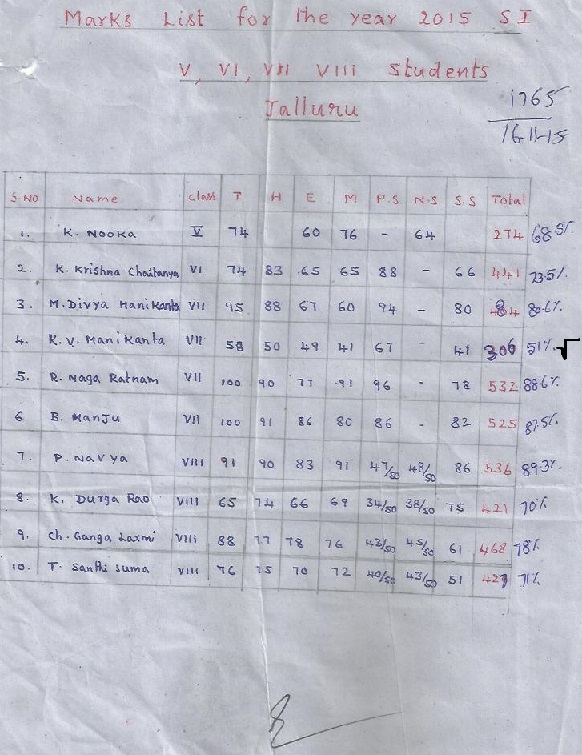 Marks List for the year 2015 S I
V, VI, VII VIII students
Jalluru
1765
16-11-15
S.NO Name Class T H E M P.S N.S S S Total
1. K. Nooka V 74 60 76 - 64 274 68.5%
2. K. Krishna Chaitanya VI 74 83 65 65 88 - 66 441 73.5%
3. M. Divya Manikanta VII 95 88 67 60 94 - 80 484 80.6%
4. K. V. Manikanta VII 58 50 49 41 67 - 41 306 51%
5. R. Naga Ratnam VII 100 90 77 91 96 - 78 532 88.6%
6 B. Manju VII 100 91 86 80 86 - 82 525 87.5%
7. P. Navya VIII 91 90 83 91 47/50 48/50 86 536 89.3%
8. K. Durga Rao VIII 65 74 66 69 34/50 38/50 75 421 70%
9. Ch. Ganga Laxmi VIII 88 77 78 76 43/50 45/50 61 468 78%
10. T. Santhi Suma VIII 76 75 70 72 40/50 43/50 51 427 71%